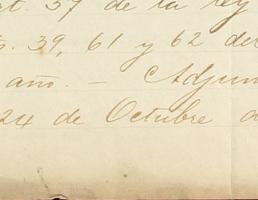 t. 37 de la ley
s. 39, 61 y 62 del
año. — Adjun
24 de Octubre d